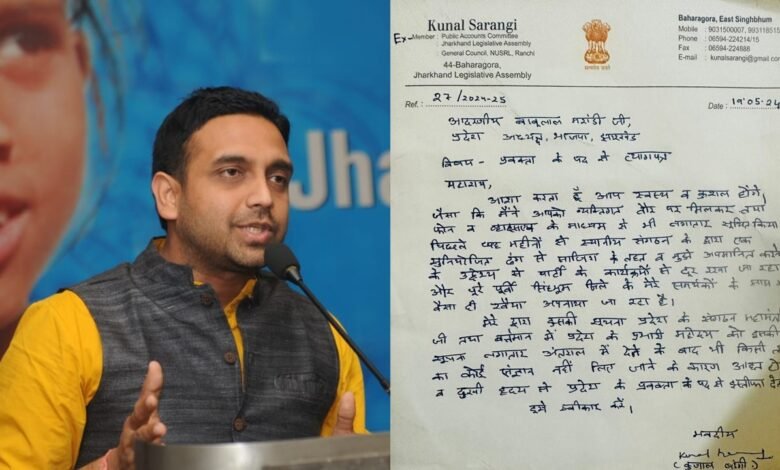 Jha
Kunal Sarangi
Ex- Member : Public Accounts Committee
: Jharkhand Legislative Assembly
: General Council, NUSRL, Ranchi
44-Baharagora,
Jharkhand Legislative Assembly
सत्यमेव जयते
Baharagora, East Singhbhum
Mobile : 9031500007, 993118515
Phone : 06594-224214/15
Fax : 06594-224888
E-mail : kunalsarangi@gmail.com
Ref. : 27/2024-25
Date : 19.05.24
आदरणीय बाबुलाल मरांडी जी,
प्रदेश अध्यक्ष, भाजपा, झारखंड
विषय - प्रवक्ता के पद से त्यागपत्र
महाशय,
आशा करता हूँ आप स्वस्थ व कुशल होंगे,
जैसा कि मैंने आपको व्यक्तिगत तौर पर मिलकर तथा
फोन व व्हाट्सएप के माध्यम से भी लगातार सूचित किया
पिछले छह महीनों से स्थानीय संगठन के द्वारा एक
सुनियोजित ढंग से साजिश के तहत व मुझे अपमानित करने
के उद्देश्य से पार्टी के कार्यक्रमों से दूर रखा जा रहा
और पूरे पूर्वी सिंहभूम जिले के मेरे समर्थकों के साथ भी
वैसा ही रवैया अपनाया जा रहा है।
मेरे द्वारा इसकी सूचना प्रदेश के संगठन महामंत्री
जी तथा वर्तमान में प्रदेश के प्रभारी महोदय को इसकी
सूचना लगातार अंतराल में देने के बाद भी किसी
का कोई संज्ञान नहीं लिए जाने के कारण आहत हो
व दुखी हृदय से प्रदेश के प्रवक्ता के पद से इस्तीफा देता
इसे स्वीकार करें।
भवदीय
Kunal
(कुणाल षाड़ंगी)